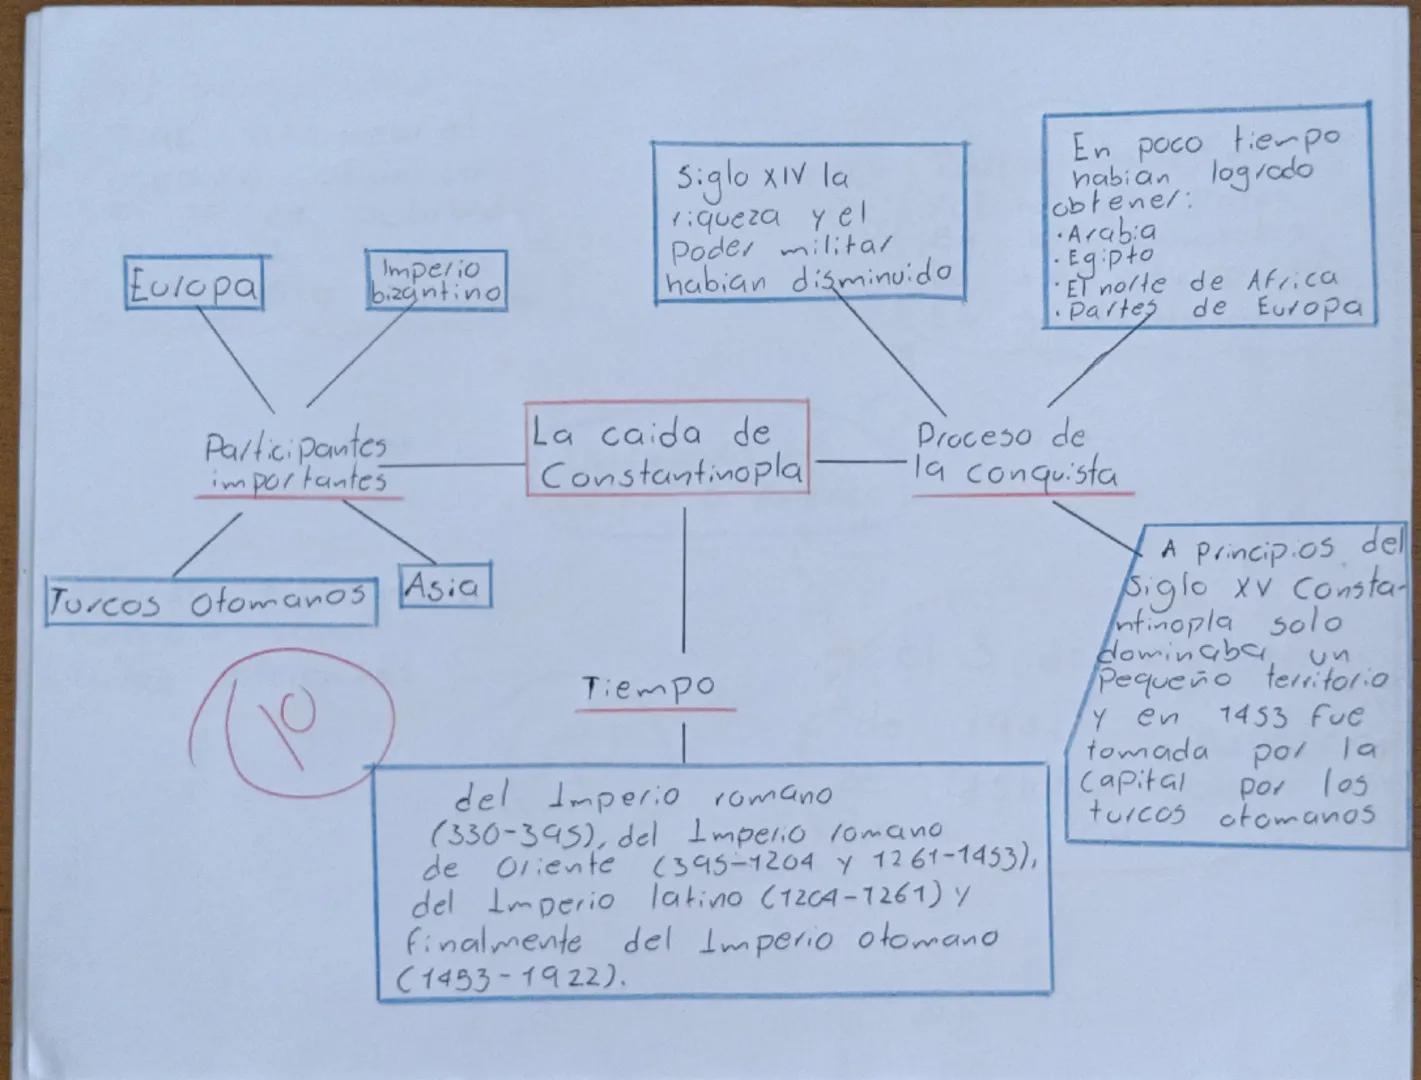 Europa
Imperio
bizantino
Siglo XIV la
riqueza y el
Poder militar
habian disminuido
En poco tiempo
habian logrado
obtener:
· Arabia
· Egipto
· El norte de Africa
· Partes de Europa
Participantes
importantes
La caida de
Constantinopla
Proceso de
la conquista
Turcos otomanos
Asia
A principios del
Siglo XV Consta-
ntinopla solo
dominaba un
Pequeño territorio
y en 1453 fue
tomada por la
Capital por los
turcos otomanos
10
Tiempo
del Imperio romano
(330-395), del Imperio romano
de Oriente (395-1204 y 1261-1453),
del Imperio latino (1204-1261) y
finalmente del Imperio otomano
(1453-1922).